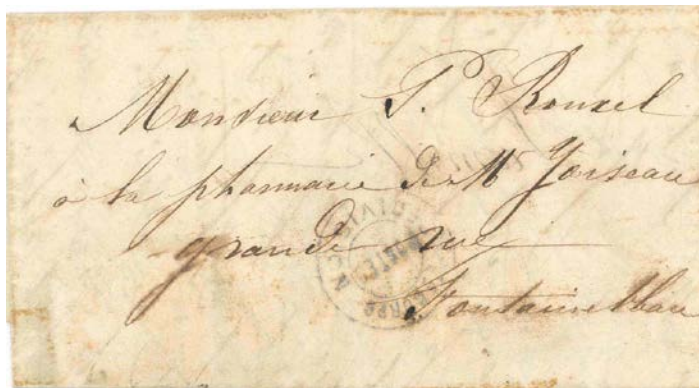 Monsieur P. Rouxel
à la pharmacie de Mr
grande rue
Fontainebleau